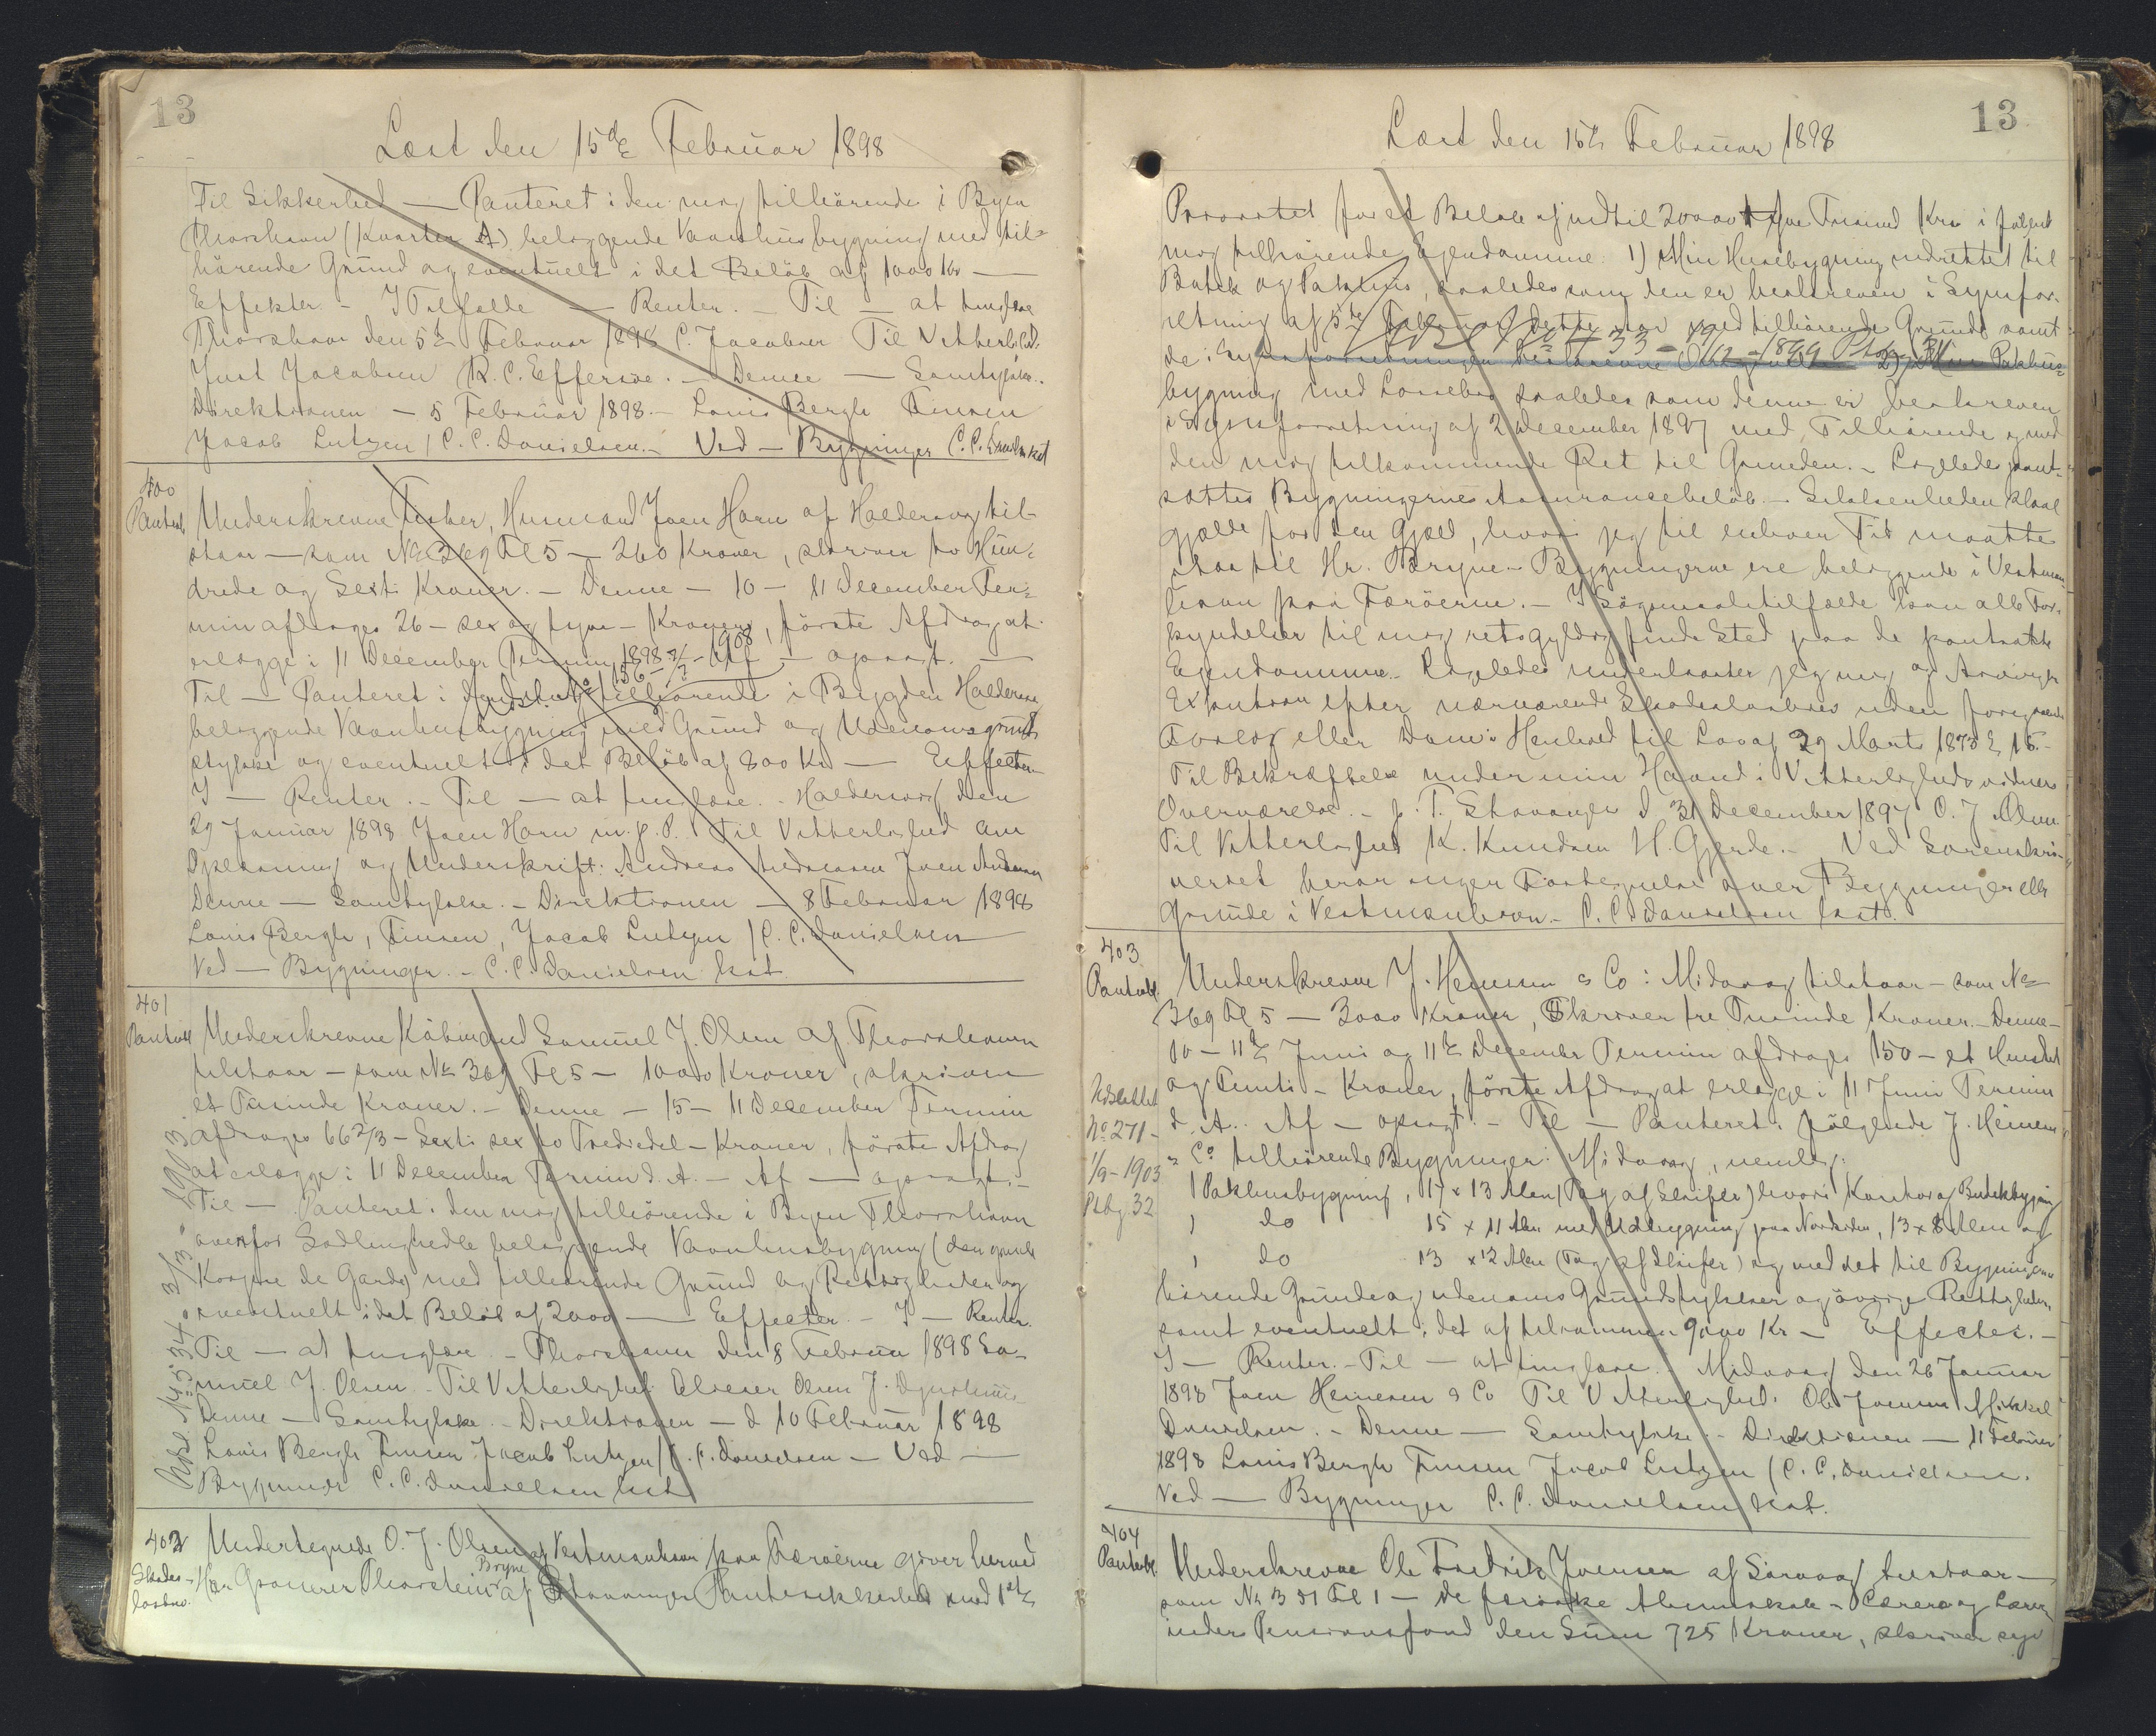 13
Læst den 15de Februar 1898
Til Sikkerhed — Panteret i den mig tilhörende i Byen
Thorshavn (Kvarter A) beliggende Vaanhusbygning med til-
hörende Grund og eventuelt i det Belöb af 1000 Kr —
Effekter - I Tilfælde — Renter. - Til — at tinglæse
Thorshavn den 5te Februar 1898 C. Jacobsen Til Vitterlighed.
Just Jacobsen R. C. Effersøe. - Denne — Samtykke.
Direktionen — 5 Februar 1898. - Louis Bergh Finsen
Jacob Lutzen / C. C. Danielsen. - Ved — Bygninger C. C. Danielsen kst
400
Panteobl
Underskrevne Fisker, Husmand Joen Horn af Haldersvig til-
staar — som No 369 Fl 5 — 260 Kroner, skriver to Hun-
drede og Sexti Kroner. - Denne — 10 — 11 December Ter-
min afdrages 26 - sex og tyve - Kroner, förste Afdrag at
erlægge i 11 December Termin 1898 - Af — opsagt. —
Til — Panteret i den mig tilhörende i Bygden Haldersvig
beliggende Vaanhusbygning med Grund og Udenomsgrund
stykke og eventuelt i det Belöb af 800 Kr — Effecter -
I — Renter. - Til — at tinglæse. - Haldersvig den
29 Januar 1898 Joen Horn m. f. P. Til Vitterlighed om
Oplæsning og Underskrift: Andreas Andreasen Joen Andersen
Denne — Samtykke. - Direktionen — 8 Februar 1898
Louis Bergh, Finsen, Jacob Lutzen / C. C. Danielsen
Ved — Bygninger. - C. C. Danielsen kst.
401
Panteobl
Underskrevne Købmand Samuel J. Olsen af Thorshavn
tilstaar — som No 369 Fl 5 — 1000 Kroner, skriver
et Tusinde Kroner. - Denne — 15 — 11 December Termin
afdrages 66 2/3 - Sexti sex to Trediedel - Kroner, förste Afdrag
at erlægge i 11 December Termin d. A. - Af — opsagt. -
Til — Panteret i den mig tilhörende i Byen Thorshavn
ovenfor beliggende Vaanhusbygning (den gamle
) med tilhörende Grund og Rettigheder og
eventuelt i det Belöb af 2000 — Effecter. - I — Renter.
Til — at tinglæse. - Thorshavn den 8 Februar 1898 Sa-
muel J. Olsen - Til Vitterlighed Olsen J.
Denne — Samtykke. - Direktionen — d 10 Februar 1898
Louis Bergh Finsen Jacob Lutzen / C. C. Danielsen — Ved —
Bygninger C. C. Danielsen kst
402
Skades-
løsbrev.
Undertegnede O. J. Olsen af Vestmanhavn paa Færøerne giver herved
Herr Grosserer Thorstein Bryne af Stavanger Pantesikkerhed med 1ste
13
Læst den 15de Februar 1898
Prioritet for et Belöb af indtil 20000 Tusind Kr i følgende
mig tilhörende Ejendomme: 1) Min Husebygning indrettet til
Butik og Pakhus, saaledes som den er beskreven i Synsfor-
retning af 5te dette Aar med tilhörende Grund samt
de i Synsforretningen beskrevne 2) Min Pakhus-
bygning med saaledes som denne er beskreven
i Synsforretning af 2 December 1897 med Tilhörende og med
den mig tilkommende Ret til Grunden. - Ligeledes pant-
sættes Bygningernes Assurancebelöb. - Skadesløsheden skal
gjælde for den Gjæld, hvori jeg til enhver Tid maatte
staa til Hr. Bryne - Bygningerne ere beliggende i Vestman-
havn paa Færöerne. - I Søgsmaalstilfælde kan alle For-
kyndelser til mig retsgyldig finde Sted paa de pantsatte
Ejendomme. Ligeledes underkaster jeg mig og Arvinger
Exsecution efter nærværende Skadesløsbrev uden foregaaende
Forlig eller Dom i Henhold til Lov af 29 Marts 1873 § 15. -
Til Bekræftelse under min Haand i Vitterlighedsvidners
Overværelse. - p. T. Stavanger d 31 December 1897 O. J. Olsen.
Til Vitterlighed K. Knudsen H. Gjerde. - Ved Sorenskri-
veriet beror ingen Fortegnelse over Bygninger eller
Grunde i Vestmanhavn. - C. C. Danielsen kst.
403
Panteobl.
Underskrevne J. Heinesen & Co i Midvaag tilstaar — som No
369 Fl 5 — 3000 Kroner, Skriver tre Tusinde Kroner. - Denne —
10 — 11te Juni og 11te December Termin afdrages 150 - et Hundrede
og Femti - Kroner, förste Afdrag at erlægge i 11 Juni Termin
d. A. Af — opsagt. - Til — Panteret i følgende J. Heinesen
& Co tilhörende Bygninger i Midvaag, nemlig:
Udslettet
No 271 -
1/9 - 1903
Ptbg 32
1 Pakhusbygning, 17 x 13 Alen (Tag af Skifer) hvori Kontor og Butikbygning
1 do 15 x 11 Alen med Udbygning paa Nordsiden, 13 x 8 Alen og
1 do 13 x 12 Alen (Tag af Skifer) og med det til Bygningerne
hörende Grunde og udenoms Grundstykker og övrige Rettigheder,
samt eventuelt i det af tilsammen 9000 Kr — Effecter. -
I — Renter. - Til — at tinglæse. Midvaag den 26 Januar
1898 Joen Heinesen & Co Til Vitterlighed: Ole Joensen Mikkel
Danielsen. - Denne — Samtykke. - Direktionen — 11 Februar
1898 Louis Bergh Finsen Jacob Lutzen / C. C. Danielsen.
Ved — Bygninger C. C. Danielsen kst.
404
Panteobl
Underskrevne Ole Fredrik Joensen af Sörvaag tilstaar —
som No 351 Fl 1 — de færøske Almueskole-Lærere og Lærer-
inders Pensionsfond den Sum 725 Kroner, skriver syv